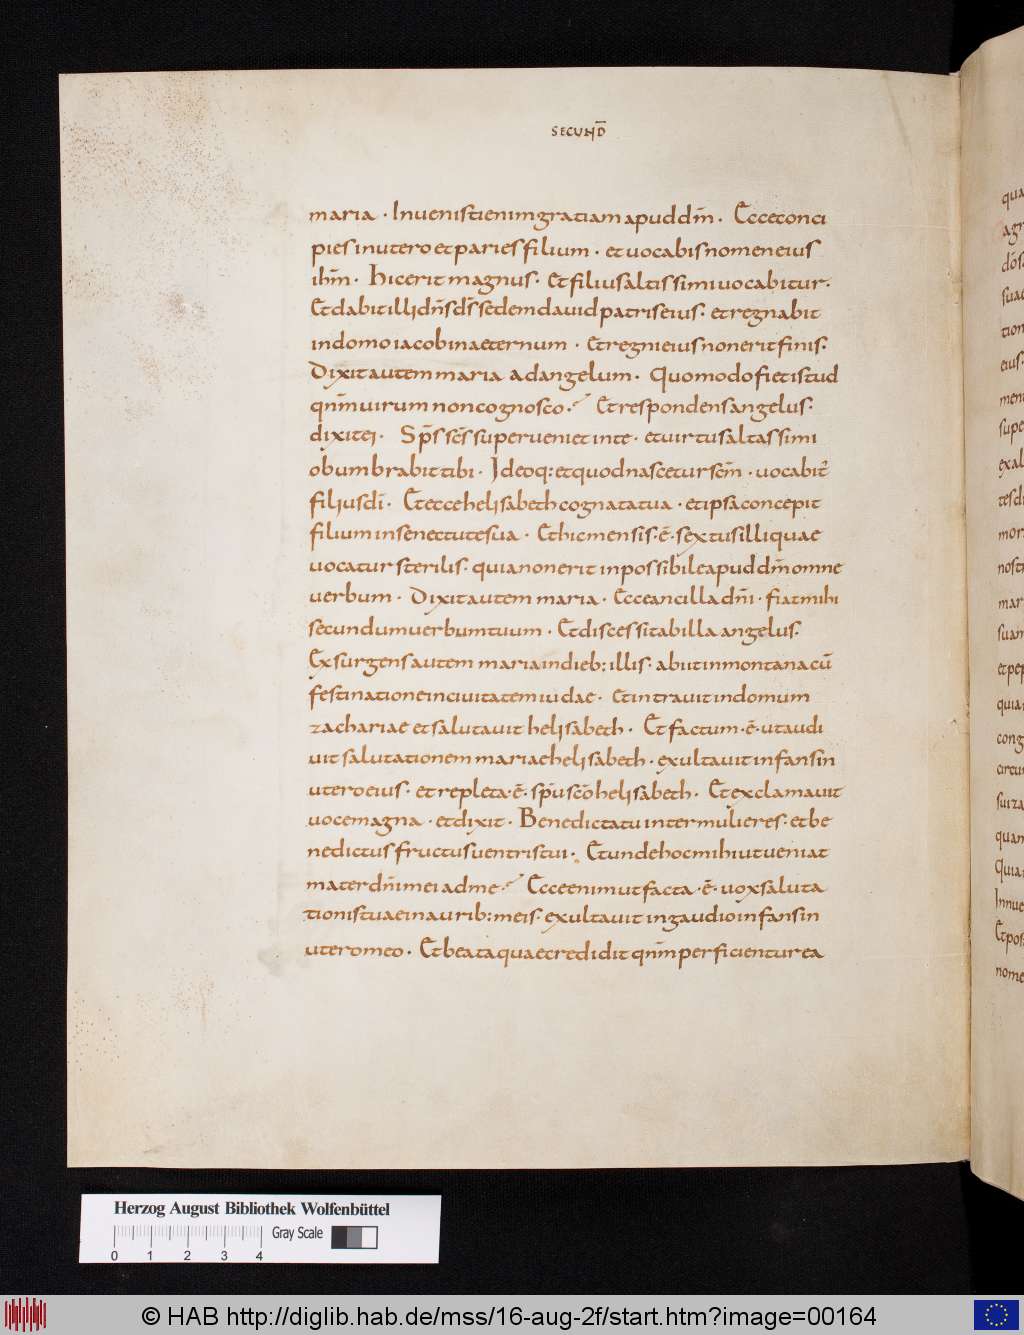 SECUND̅
maria · Inuenistienimgratiam apud dm̅ · Ecceconci
pies inutero et paries filium · et uocabis nomen eius
ihm̅ · hic erit magnus · Et filius altissimi uocabitur ·
Et dabit illi dn̅s ds̅ sedem dauid patris eius · et regnabit
in domo iacob in aeternum · Et regni eius non erit finis ·
Dixit autem maria ad angelum · Quomodo fiet istud
qnm̅ uirum non cognosco · Et respondens angelus ·
dixit ei · Sps̅ scs̅ superueniet in te · et uirtus altassimi
obumbrabit tibi · Ideoq: et quod nascetur scm̅ · uocabit̅
filius di̅ · Et ecce helisabeth cognata tua · et ipsa concepit
filium in senectute sua · Et hic mensis · e̅ · sextus illi quae
uocatur sterilis · quia non erit inpossibile apud dm̅ omne
uerbum · Dixit autem maria · Ecce ancilla dn̅i · fiat mihi
secundum uerbum tuum · Et discessit ab illa angelus ·
Exsurgens autem maria in dieb: illis · abiit in montana cu̅
festinatione in ciuitatem iudae · Et intrauit in domum
zachariae et salutauit helisabeth · Et factum · e̅ · ut audi
uit salutationem mariae helisabeth · exultauit infans in
utero eius · et repleta · e̅ · spu̅ sco̅ helisabeth · Et exclamauit
uoce magna · et dixit · Benedicta tu inter mulieres · et be
nedictus fructus uentris tui · Et unde hoc mihi ut ueniat
mater dn̅i mei ad me · Ecce enim ut facta · e̅ · uox saluta
tionis tuae in aurib: meis · exultauit in gaudio infans in
utero meo · Et beata quae credidit qnm̅ perficientur ea
qua
agr
suau
tion
eius ·
men
supe
exal
tes di
mor
nostr
mar
suam
et pep
quia
cong
circu
sui za
quam
Quia
Innue
Et pos
nome
Herzog August Bibliothek Wolfenbüttel
Gray Scale
0 1 2 3 4
© HAB http://diglib.hab.de/mss/16-aug-2f/start.htm?image=00164